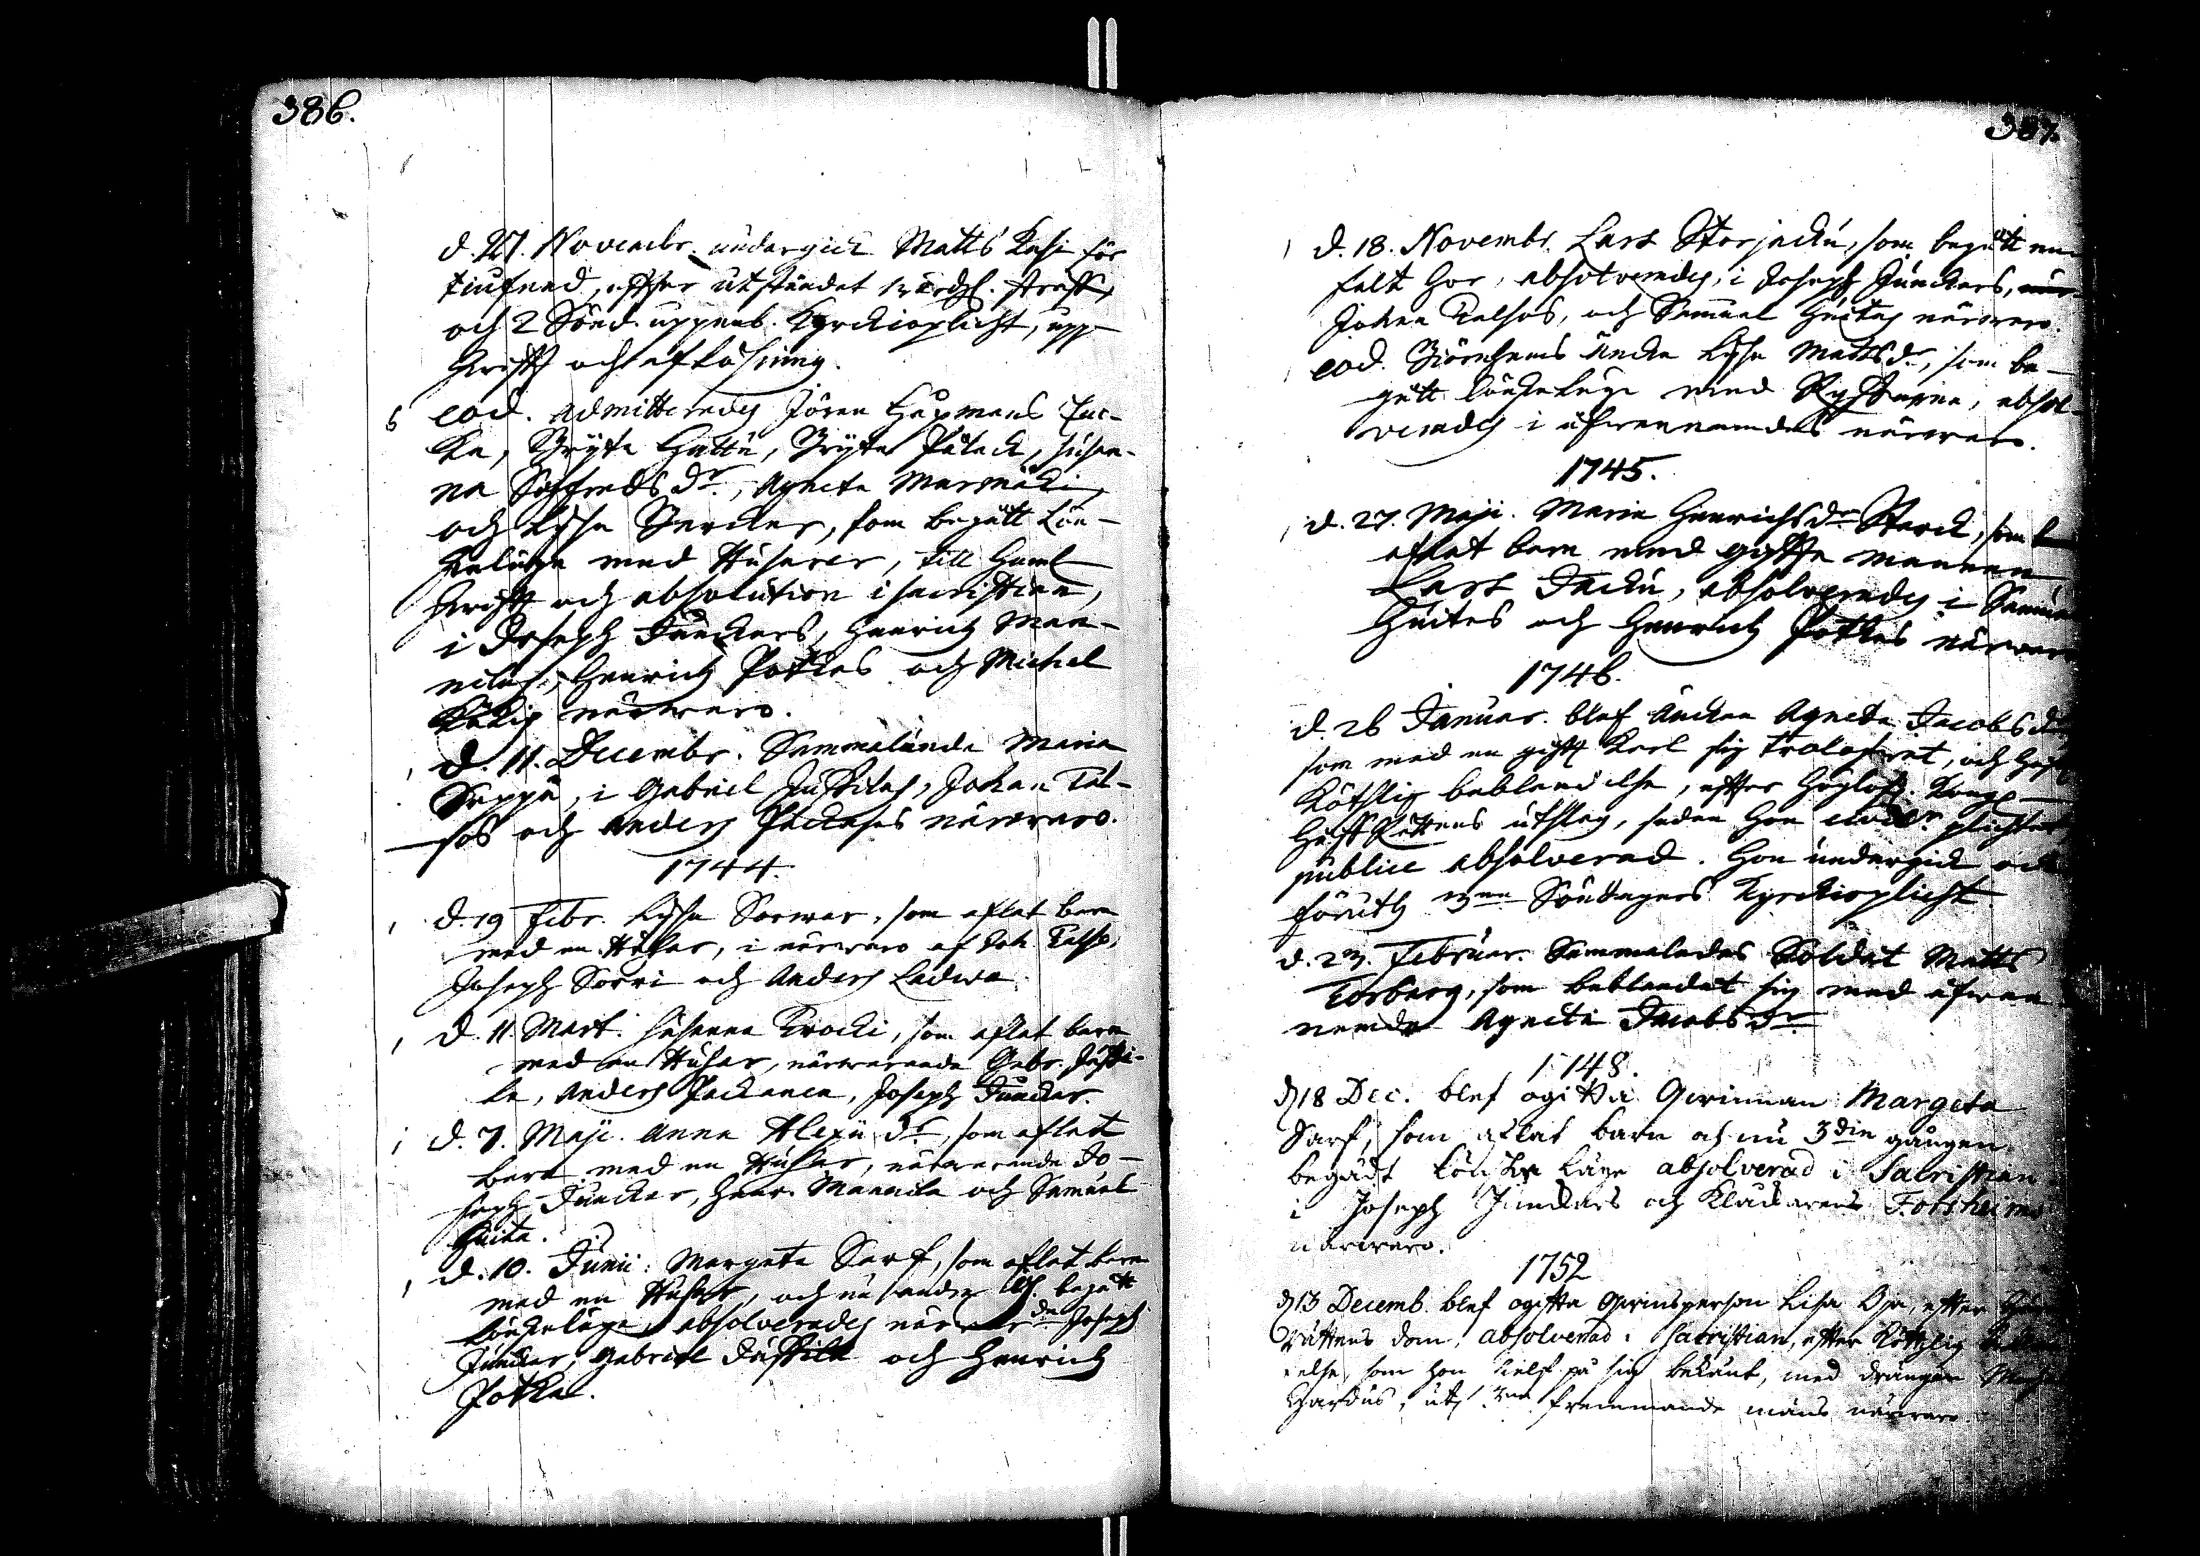 386.
d. 27. Novembr. undergick Matts Kasi för
tiufnad, efter utståndet straff,
och 2 Sönd. uppenb. Kyrckioplicht, upp-
skrifft och aflösning.
6 eod. admitterades Jören Hapmans Enc-
ka, Bryta Hattu, Bryta Pålack, Susan-
na Sigfredsdr., Agneta Marmäki,
och Lysa Bercker, som begått Lön-
skaläge med Husarer, till Heml.
skrifft och absolution i sacristian,
i Joseph Junckers, Henrich Man-
nilas, Henrich Potkas och Michel
närwaro.
1 d. 11. Decembr. Sammalunda Maria
Seppä, i Gabriel Justilas, Johan Tal-
sos och Anders Packases närwaro.
1744.
1 d. 19 Febr. Lysa Sorwar, som aflat barn
med en Husar, i närwaro af Joh. Talso,
Joseph Sorri och Anders Ladwa.
1 d. 11. Mart. Susanna Krocki, som aflat barn
med en Husar, närwarande Gabr. Justi-
la, Anders Packanen, Joseph Juncker.
1 d. 7. Maji. Anna Alexii dr., som aflat
barn med en Husar, närwarande Jo-
seph Juncker, Henr. Mannila och Samuel
Huita.
1 d. 10. Junii. Margeta Sarf, som aflat barn
med en Husar, och nu andra begått
lönskaläge, absolverades närwarde Joseph
Juncker, Gabriel Justila och Henrich
Potka.
387.
1 d. 18. Novembr. Lars Storjacku, som begått en-
kelt Hor, absolverades, i Joseph Junckers,
Johan Talsos, och Samuel Huitas närwaro.
1 eod. Björnhems Encka Lysa Mattsdr., som be-
gått lönskaläge med Ryssarna, absol-
verades i ofwannämdes närwaro.
1745.
1 d. 27. Maji. Maria Henrichsdr Starck, som
aflat barn med giffta mannen
Lars Jacku, absolverades i Samuel
Huitas och Henrich Potkas närwaro
1746.
d. 26 Januar. blef Enckan Agneta Jacobsdr
som med en gifft Karl sig trolofwat, och haft
Köttslig beblandelse, efter Höglofl. Kongl
HoffRättens utslag, sedan hon plichtat
publice absolverad. Hon undergick och
förut 3ne Söndagars Kyrckioplicht
d. 23. Februar. Sammaledes Soldat Matts
Torberg, som beblandat sig med ofwan
nämde Agneta Jacobsdr
1748.
d 18 Dec. blef ogiffta Qwinnan Margeta
Sarf, som aflat barn och nu 3die gången
begådt Lönskaläge absolverad i Sacristian
i Joseph Junckars och Klåckarens Forsheims
närwaro.
1752
d 13 Decemb. blef ogiffta Qwinsperson Lisa Oja, efter
Rättens dom, absolverad i Sacristian, efter Köttzlig
else, som hon sielf på sig bekänt, med drängen
Gardus, uti 3ne fremmande mäns närwaro.